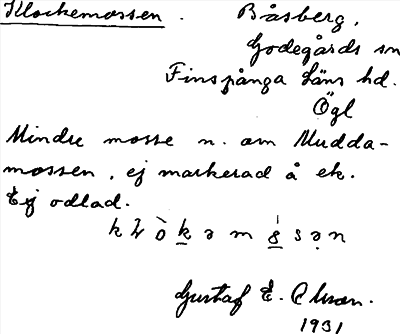 Klockemossen. Båsberg,
Godegårds sn
Finspånga läns hd.
Ögl
Mindre mosse n. om Mudda-
mossen, ej markerad å ek.
Ej odlad.
Gustaf E. Olsson.
1931